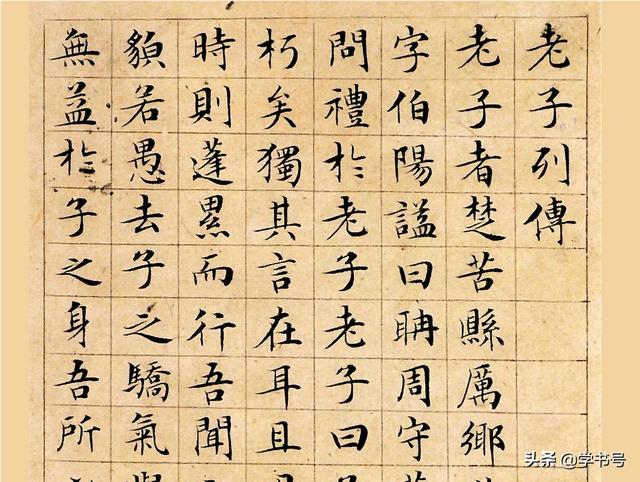 老子列傳
老子者楚苦縣厲鄉
字伯陽謚曰聃周守
問禮於老子老子曰
朽矣獨其言在耳且
時則蓬累而行吾聞
䫉若愚去子之驕氣
無益於子之身吾所
头条 @学书号